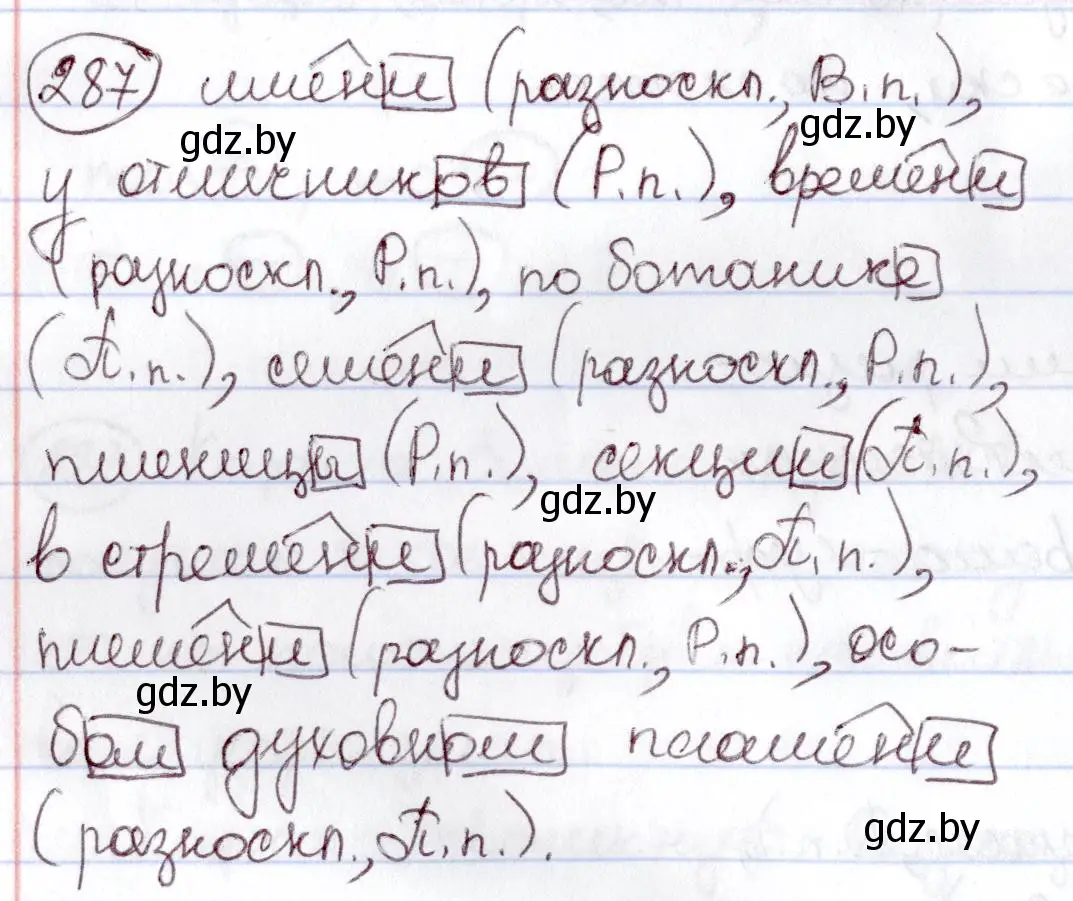 287 имени (разноскл., В.п.),
gdz.by gdz.by
у отличников (Р.п.), времени
(разноскл., Р.п.), по ботанике
(П.п.), семени (разноскл., Р.п.),
пшеницы (Р.п.), секции (П.п.),
gdz.by
в стремени (разноскл., П.п.),
племени (разноскл., Р.п.), осо-
gdz.by
бом духовном пламени
gdz.by
(разноскл., П.п.).